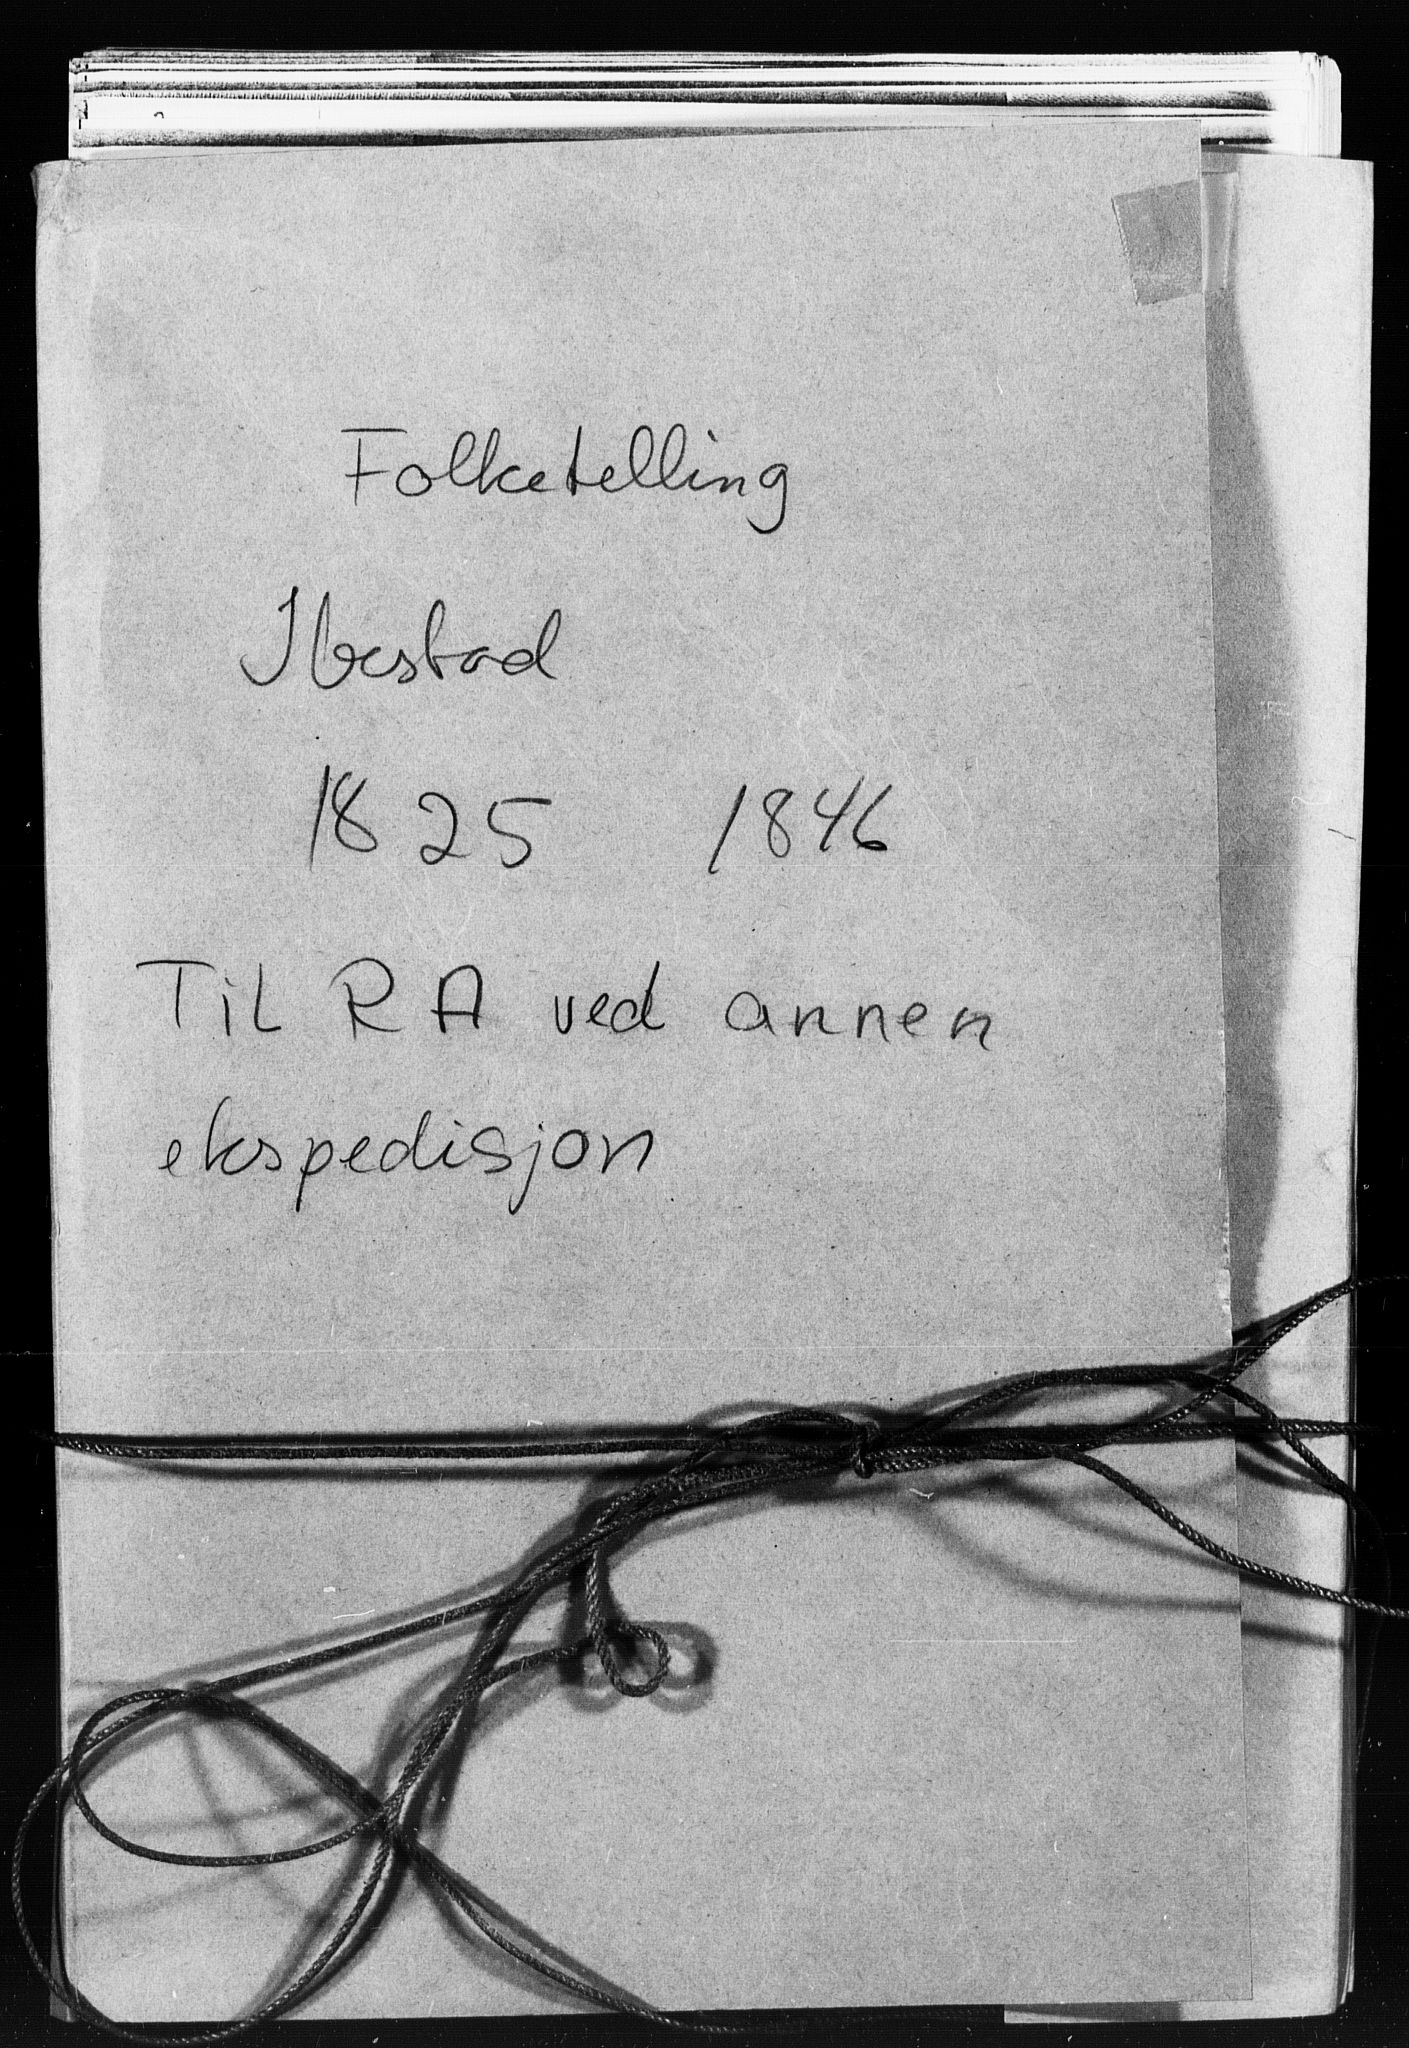 Folketelling
Ibestad
1825 1846
Til RA ved annen
ekspedisjon